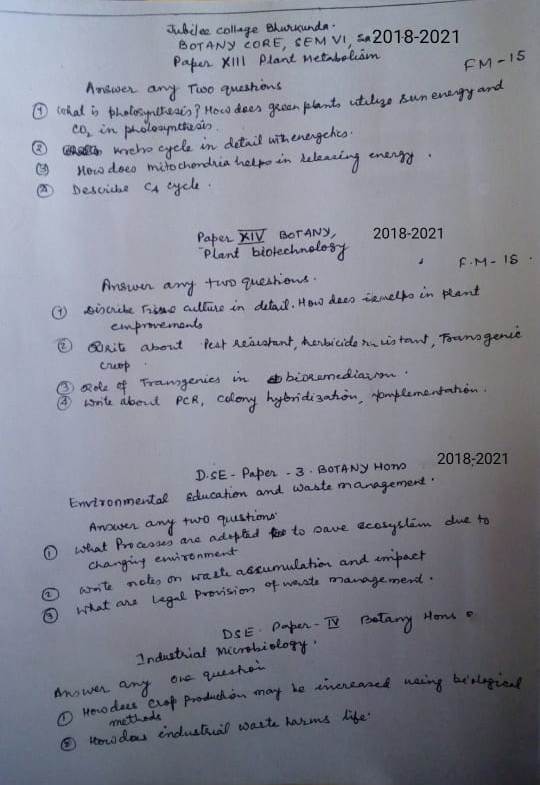 Jubilee Collage Bhurkunda.
BOTANY CORE, SEM VI, 2018-2021
Paper XIII Plant Metabolism
FM-15
Answer any Two questions
① What is photosynthesis? How does green plants utilize sun energy and
CO2 in photosynthesis.
② Krebs cycle in detail with energetics.
③ How does mitochondria helps in releasing energy.
④ Describe C4 cycle.
Paper XIV BOTANY, 2018-2021
Plant biotechnology
F.M-15.
Answer any two questions.
① Discribe Tissue culture in detail. How does helps in plant
emprovements
② Write about Pest resistant, herbicide resistant, Transgenic
crop.
③ Role of Transgenics in bioremediation.
④ Write about PCR, Colony hybridization,
DSE-Paper-3. BOTANY Hons 2018,2021
Environmental Education and waste management.
Answer any two qustions
① What Processes are adopted to save ecosystem due to
changing environment
② Write notes on waste accumulation and impact
③ What are Legal Provision of waste management.
DSE. Paper-IV Botany Hons
Industrial Microbiology.
Answer any one question
① How does Crop production may be increased using biological
methods
② How does industrial waste harms life.